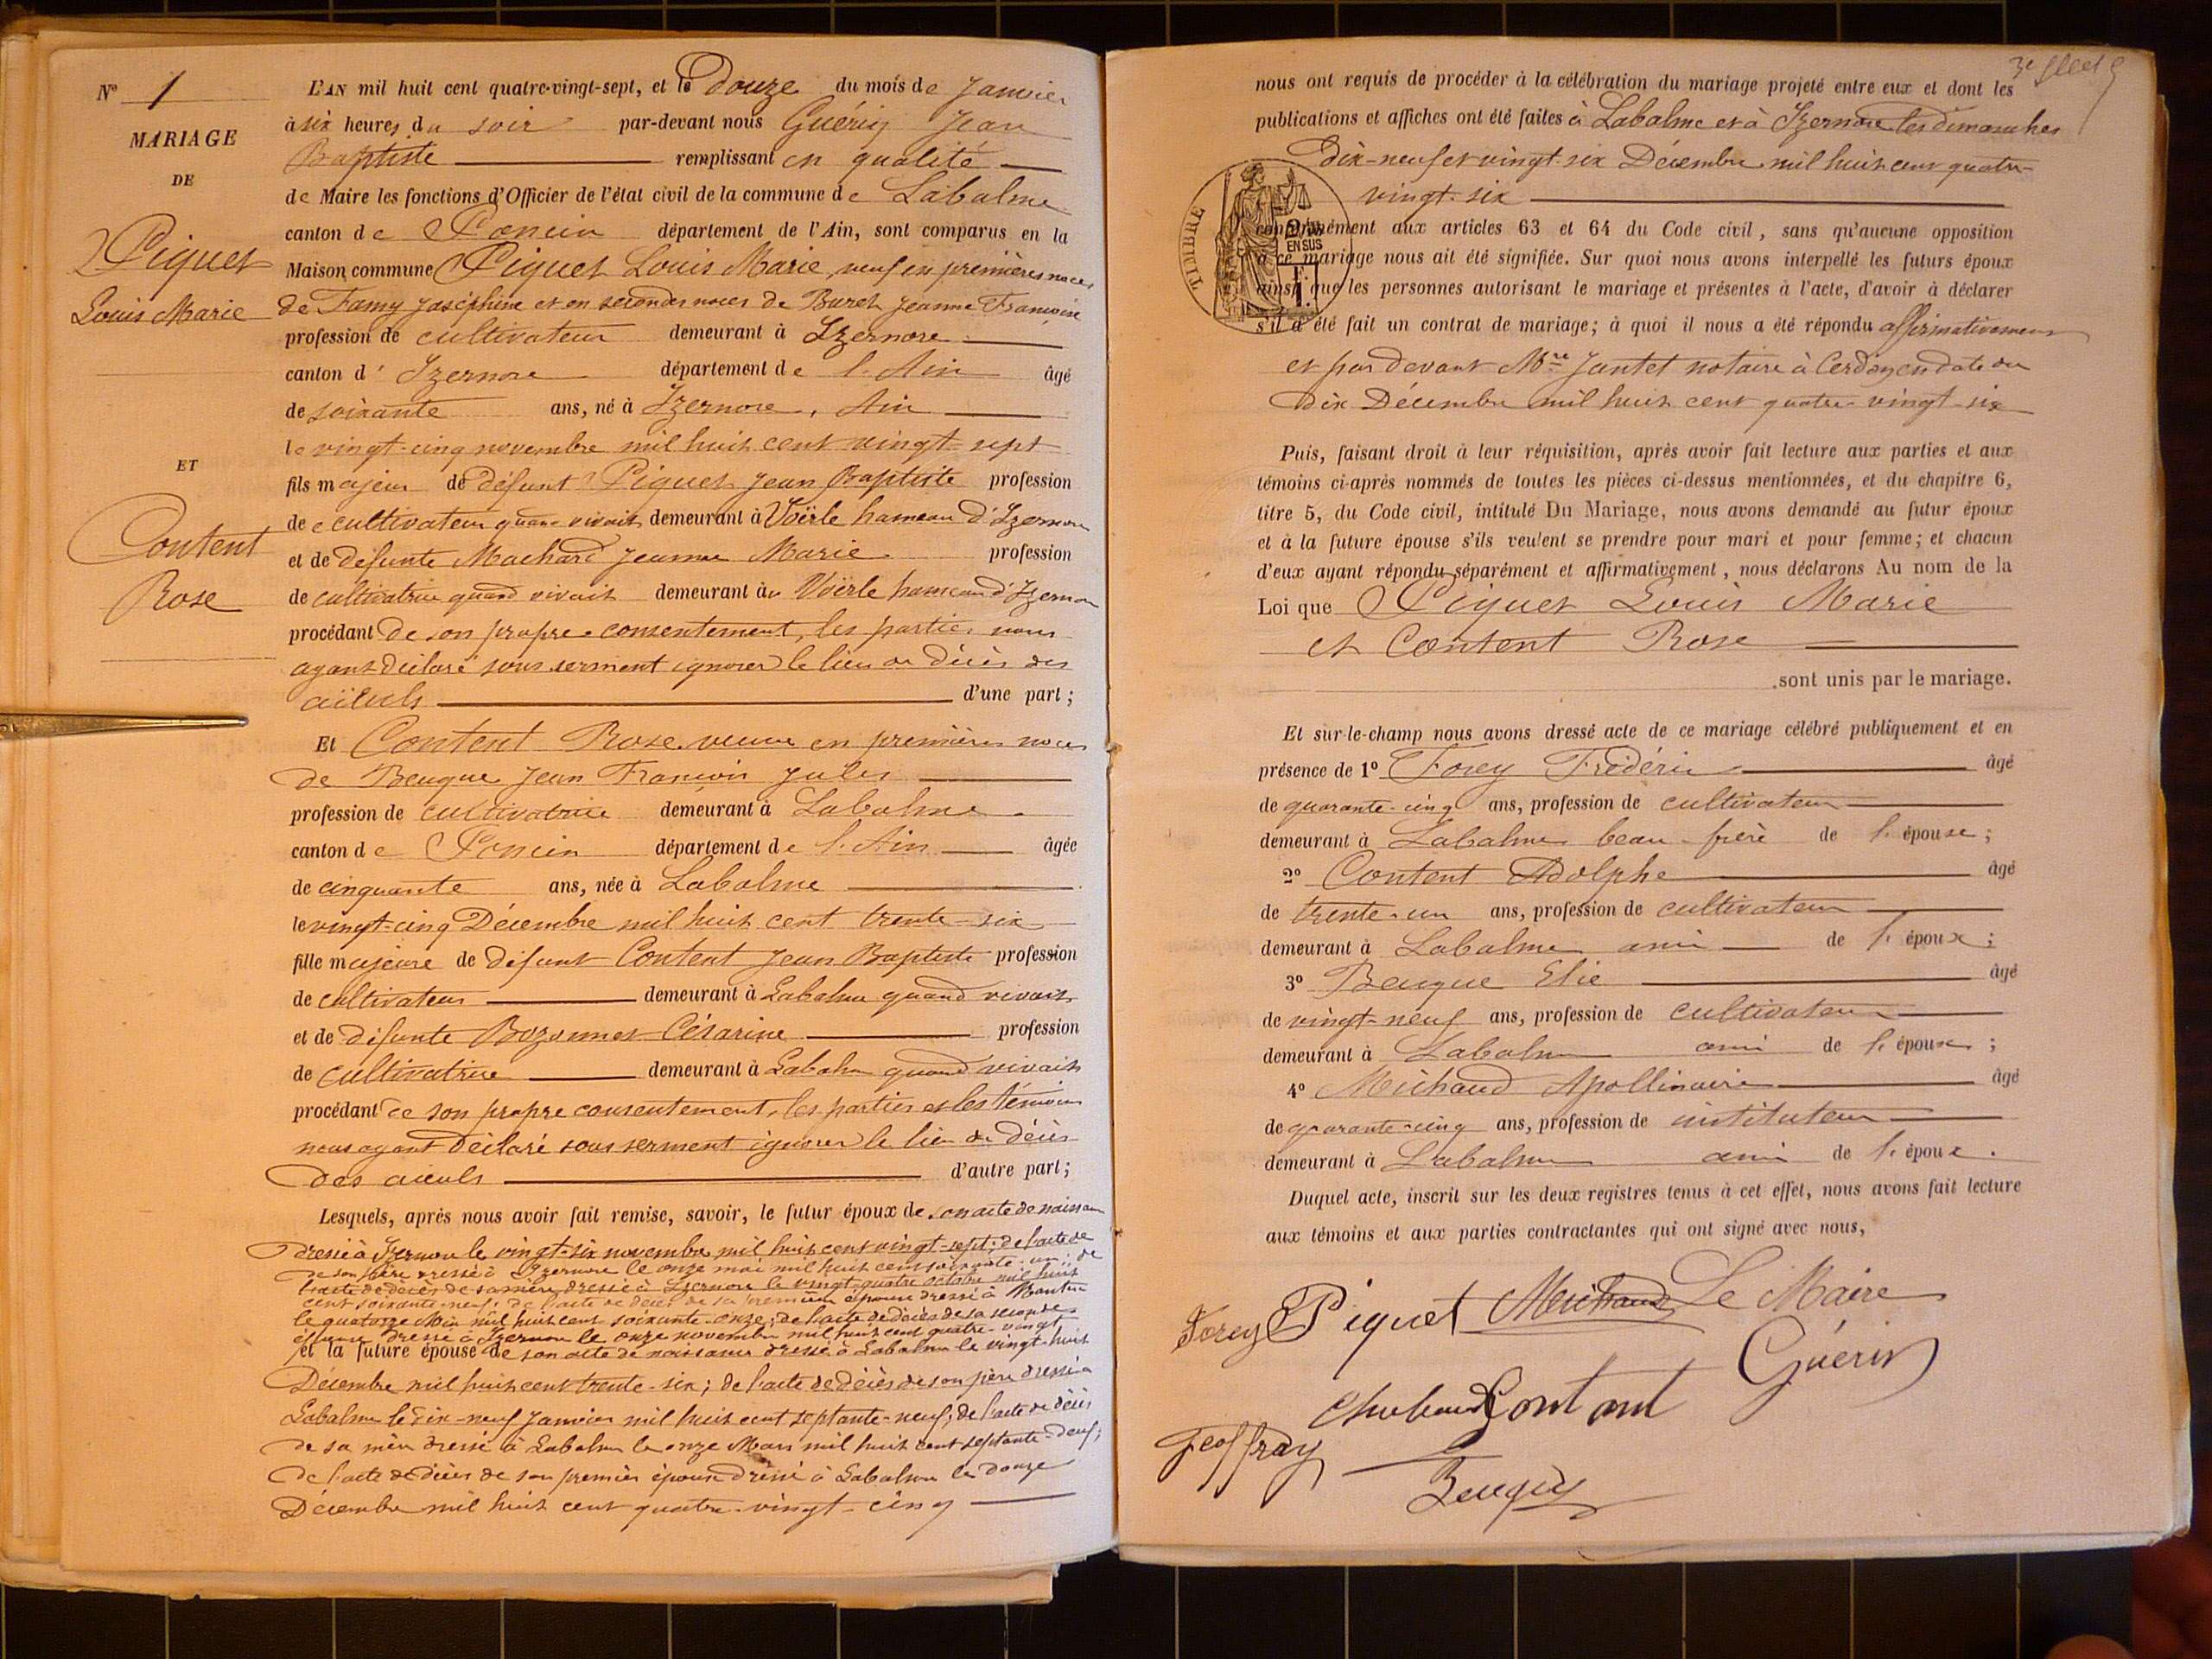 N° 1
MARIAGE
DE
Piquet
Louis Marie
ET
Content
Rose
L'AN mil huit cent quatre-vingt-sept, et le Douze du mois de Janvier
à six heures du soir par-devant nous Guérin Jean
Baptiste remplissant en qualité
de Maire les fonctions d'Officier de l'état civil de la commune de Labalme
canton de Poncin département de l'Ain, sont comparus en la
Maison commune Piquet Louis Marie, veuf en premières noces
de Famy Joséphine et en secondes noces de Buret Jeanne Françoise
profession de cultivateur demeurant à Izernore
canton d' Izernore département de l'Ain âgé
de soixante ans, né à Izernore, Ain
le vingt-cinq novembre mil huit cent vingt-sept
fils majeur de défunt Piquet Jean Baptiste profession
de cultivateur quand vivait demeurant à Voërle hameau d'Izernore
et de défunte Machard Jeanne Marie profession
de cultivatrice quand vivait demeurant à Voërle hameau d'Izernore
procédant de son propre consentement, les parties nous
ayant déclaré sous serment ignorer le lieu du décès des
aïeuls d'une part;
Et Content Rose veuve en premières noces
de Beuque Jean François Jules
profession de cultivatrice demeurant à Labalme
canton de Poncin département de l'Ain âgée
de cinquante ans, née à Labalme
le vingt-cinq Décembre mil huit cent trente-six
fille majeure de défunt Content Jean Baptiste profession
de cultivateur demeurant à Labalme quand vivait
et de défunte Bozonnet Césarine profession
de cultivatrice demeurant à Labalme quand vivait
procédant de son propre consentement, les parties et les témoins
nous ayant déclaré sous serment ignorer le lieu du décès
des aïeuls d'autre part;
Lesquels, après nous avoir fait remise, savoir, le futur époux de son acte de naissance
dressé à Izernore le vingt-six novembre mil huit cent vingt-sept; de l'acte de
de son père dressé à Izernore le onze mai mil huit cent soixante-un; de
l'acte de décès de sa mère dressé à Izernore le vingt-quatre octobre mil huit
cent soixante-neuf; de l'acte de décès de sa première épouse dressé à
le quatorze Mai mil huit cent soixante-onze; de l'acte de décès de sa seconde
épouse dressé à Izernore le onze novembre mil huit cent quatre-vingt
et la future épouse de son acte de naissance dressé à Labalme le vingt-huit
Décembre mil huit cent trente-six; de l'acte de décès de son père dressé à
Labalme le dix-neuf Janvier mil huit cent septante-neuf; de l'acte de décès
de sa mère dressé à Labalme le onze Mars mil huit cent septante-neuf;
de l'acte de décès de son premier époux dressé à Labalme le douze
Décembre mil huit cent quatre-vingt-cinq
nous ont requis de procéder à la célébration du mariage projeté entre eux et dont les
publications et affiches ont été faites à Labalme et à Izernore les dimanches
Dix-neuf et vingt-six Décembre mil huit cent quatre-
vingt-six
TIMBRE
EN SUS
conformément aux articles 63 et 64 du Code civil, sans qu'aucune opposition
à ce mariage nous ait été signifiée. Sur quoi nous avons interpellé les futurs époux
ainsi que les personnes autorisant le mariage et présentes à l'acte, d'avoir à déclarer
s'il a été fait un contrat de mariage; à quoi il nous a été répondu affirmativement
et par devant Mtre Jantet notaire à Cerdon en date du
Dix Décembre mil huit cent quatre-vingt-six
Puis, faisant droit à leur réquisition, après avoir fait lecture aux parties et aux
témoins ci-après nommés de toutes les pièces ci-dessus mentionnées, et du chapitre 6,
titre 5, du Code civil, intitulé Du Mariage, nous avons demandé au futur époux
et à la future épouse s'ils veulent se prendre pour mari et pour femme; et chacun
d'eux ayant répondu séparément et affirmativement, nous déclarons Au nom de la
Loi que Piquet Louis Marie
et Content Rose
sont unis par le mariage.
Et sur-le-champ nous avons dressé acte de ce mariage célébré publiquement et en
présence de 1° Forey Frédéric âgé
de quarante-cinq ans, profession de cultivateur
demeurant à Labalme beau-frère de l'épouse;
2° Content Adolphe âgé
de trente-un ans, profession de cultivateur
demeurant à Labalme ami de l'époux;
3° Beuque Elie âgé
de vingt-neuf ans, profession de cultivateur
demeurant à Labalme ami de l'époux;
4° Michaud Apollinaire âgé
de quarante-cinq ans, profession de instituteur
demeurant à Labalme ami de l'époux.
Duquel acte, inscrit sur les deux registres tenus à cet effet, nous avons fait lecture
aux témoins et aux parties contractantes qui ont signé avec nous,
Forey Piquet Michaud Le Maire
Guérin
Contant
Geoffray